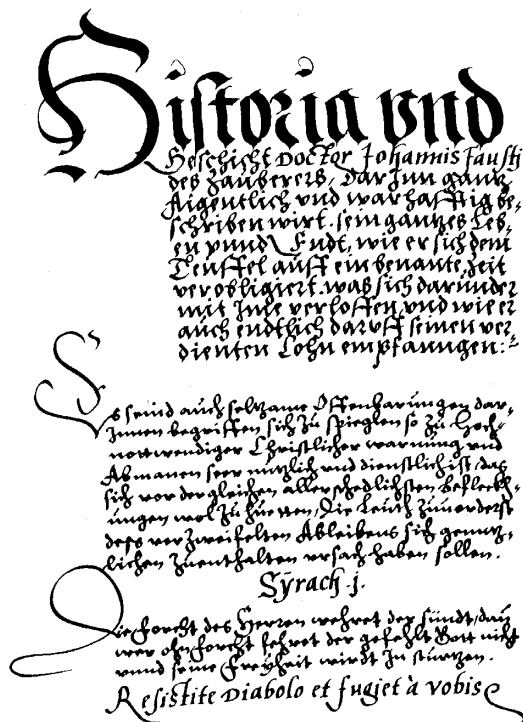 Historia vnd
Geschicht Doctor Johannis Faustj
des Zauberers, Darjnn gantz
Aigentlich vnd warhafftig be-
schriben wirt, sein gantzes Leb-
en vnnd Endt, wie er sich dem
Teuffel auff ein benante Zeit
verobligiert, was sich darunder
mit Jme verloffen, vnd wie er
auch endtlich daruff seinen ver-
dienten Lohn empfanngen:
Es seind auch seltzame Offenbarungen dar-
Jnnen begriffen sich zu Spieglen so zu Hoch-
nottwendiger Christlicher warnung vnd
Abmanen seer nützlich vnd dienstlich ist, das
sich vor dergleichen allerschedlichsten Befleckh-
ungen wol zu huetten, die Leuth zuuorderst
dess verzweifelten Ableibens sich gentz-
lichen zuenthalten vrsach haben sollen.
Syrach .j.
Die Forcht des Herren wehret der sündt, dan
wer ohn forcht fehret der gefehlt Gott nicht
vnnd seine Freyheit wirdt Jn stürtzen.
Resistite Diabolo et fugiet à vobis